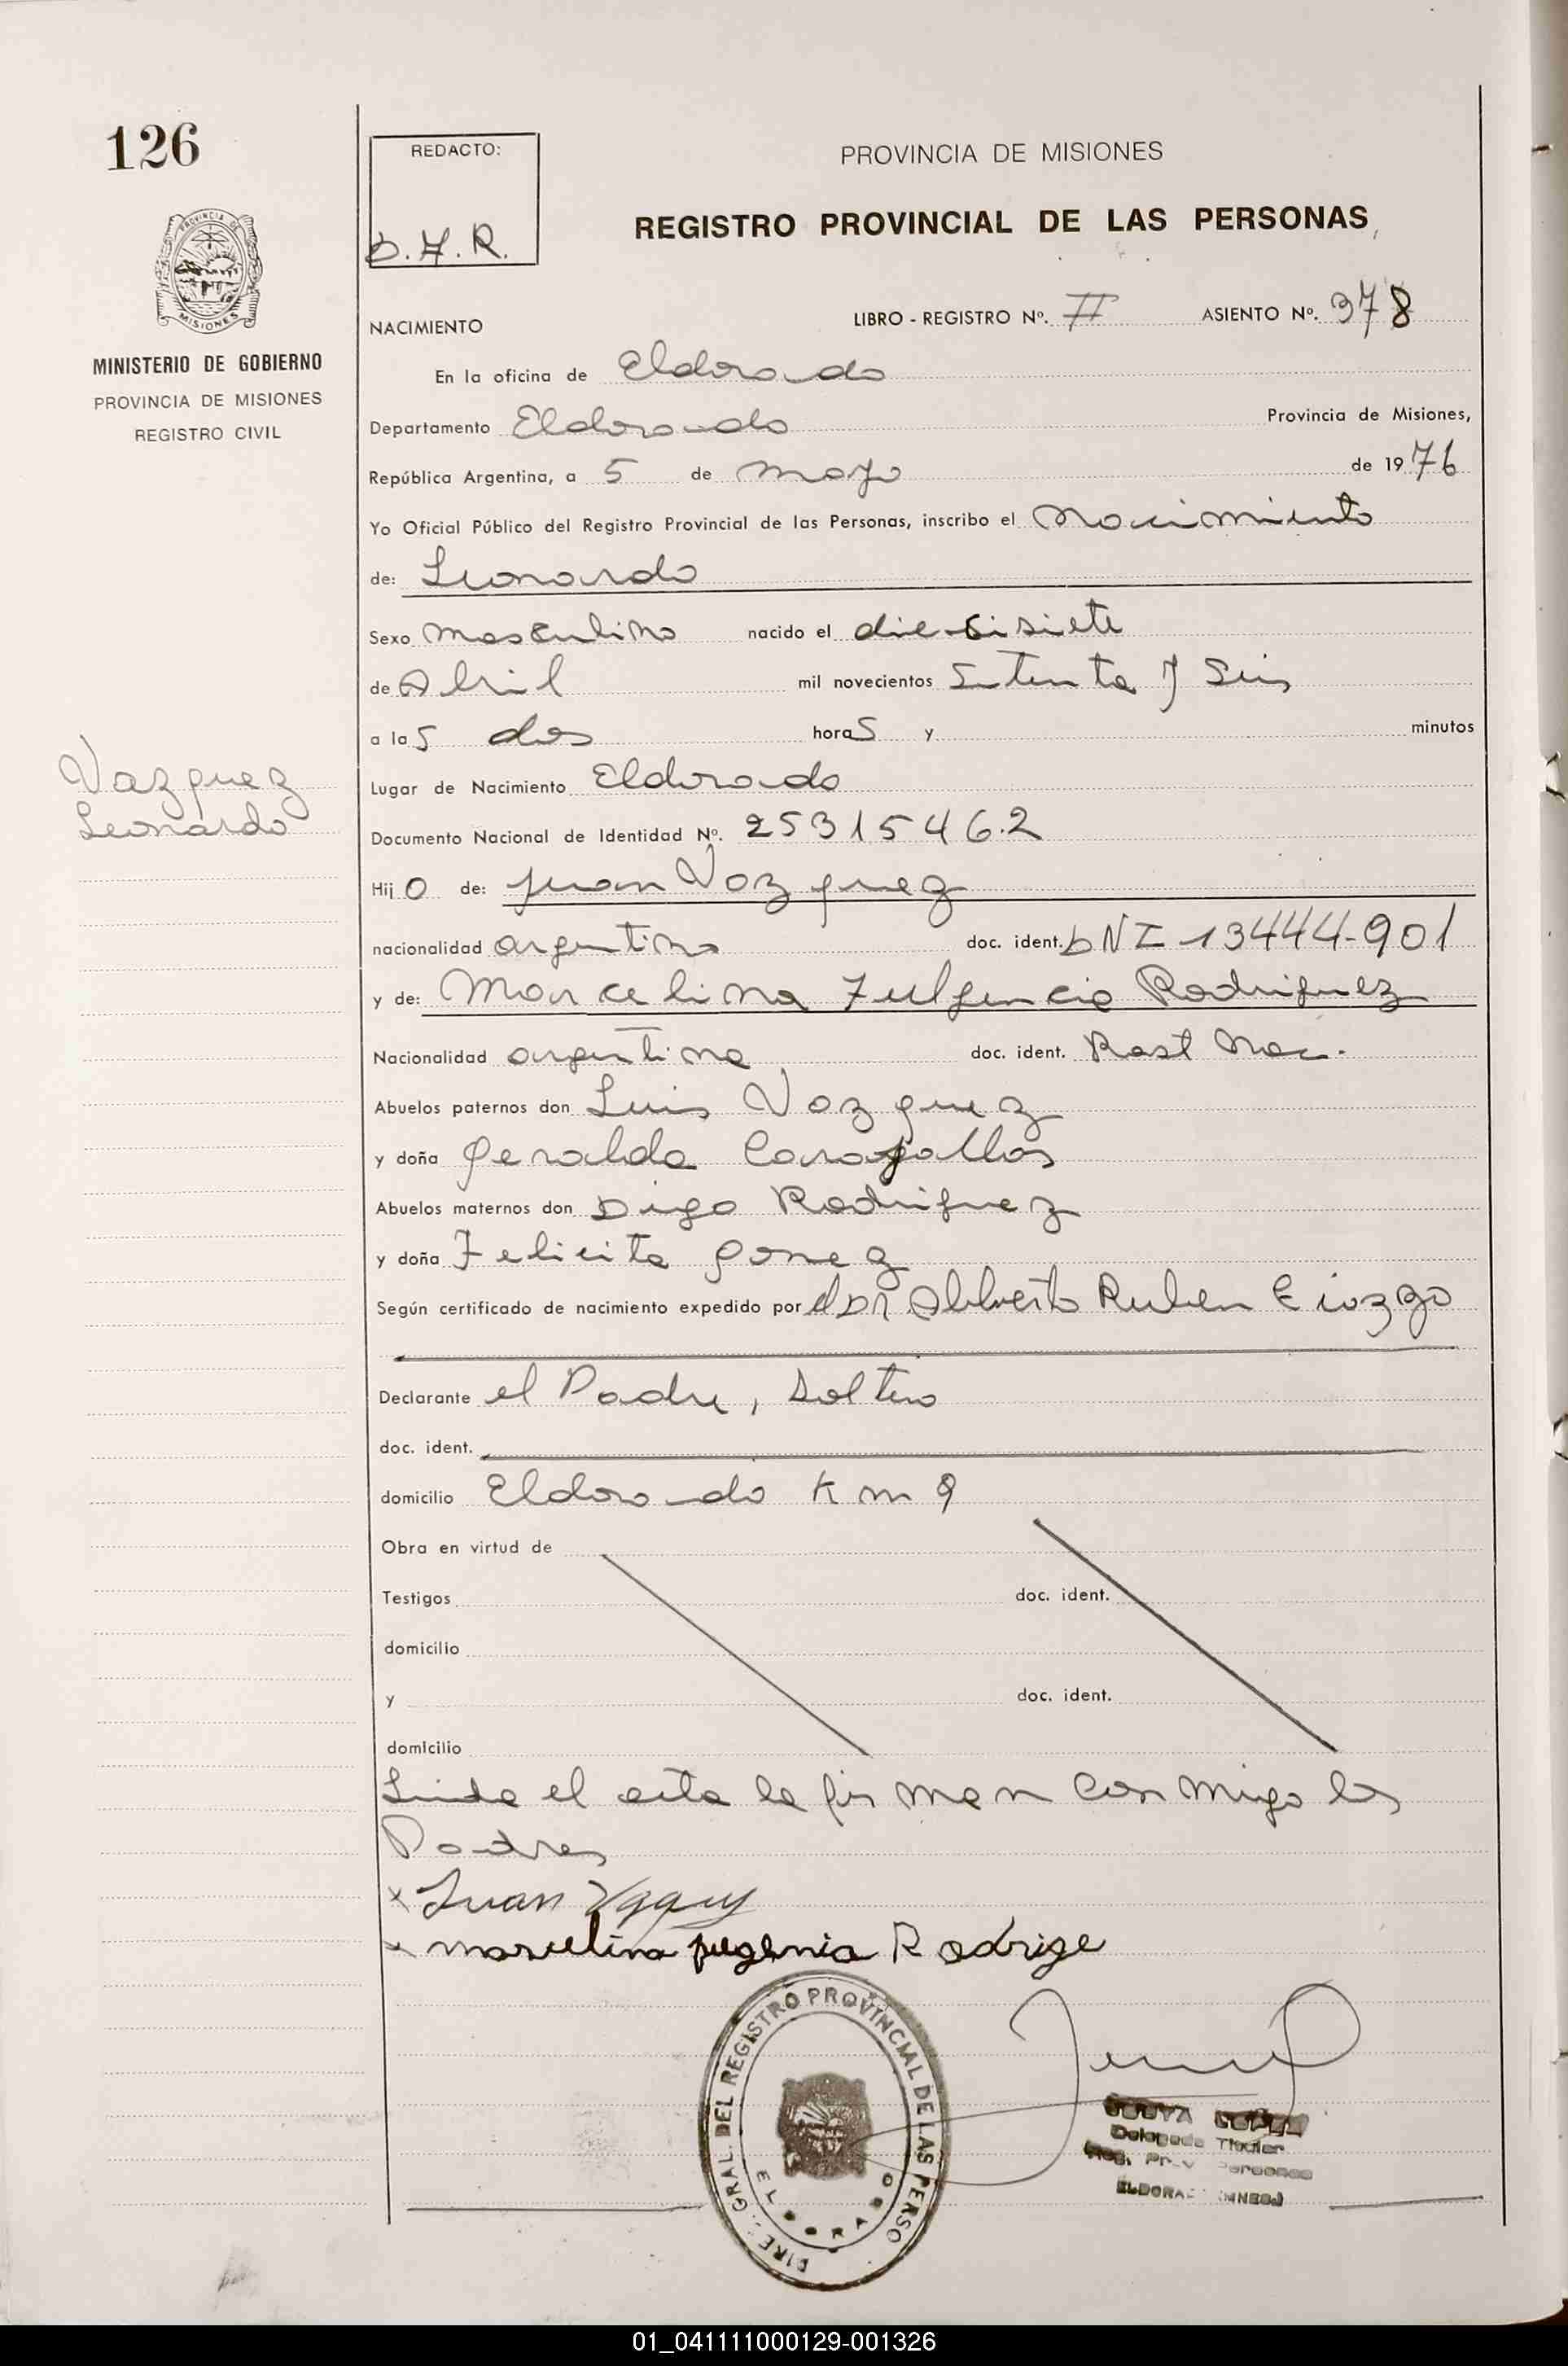 126
REDACTO:
D.F.R.
PROVINCIA DE MISIONES
REGISTRO PROVINCIAL DE LAS PERSONAS
PROVINCIA DE
MISIONES
MINISTERIO DE GOBIERNO
PROVINCIA DE MISIONES
REGISTRO CIVIL
NACIMIENTO LIBRO - REGISTRO Nº. II ASIENTO Nº. 378
En la oficina de Eldorado
Departamento Eldorado Provincia de Misiones,
República Argentina, a 5 de mayo de 1976
Yo Oficial Público del Registro Provincial de las Personas, inscribo el Nacimiento
de: Leonardo
Sexo masculino nacido el diecisiete
de Abril mil novecientos Setenta y Seis
a las dos horas y minutos
Vazquez
Leonardo
Lugar de Nacimiento Eldorado
Documento Nacional de Identidad Nº. 25315462
Hijo de: Juan Vazquez
nacionalidad argentino doc. ident. DNI 13444-901
y de: Marcelina Fulgencia Rodriguez
Nacionalidad argentina doc. ident. Part Nac.
Abuelos paternos don Luis Vazquez
y doña Geralda
Abuelos maternos don Diego Rodriguez
y doña Felicita Gomez
Según certificado de nacimiento expedido por el Dr Alberto Ruben
Declarante el Padre, Soltero
doc. ident.
domicilio Eldorado Km 9
Obra en virtud de
Testigos doc. ident.
domicilio
y doc. ident.
domicilio
Leida el acta la firman conmigo los
Padres
x Juan
x marcelina Rodrige
DIREC. GRAL. DEL REGISTRO PROVINCIAL DE LAS PERSO
ELDORADO
LOPEZ
Delegada Titular
Reg. Prov Personas
ELDORADO (MNES)
01_041111000129-001326